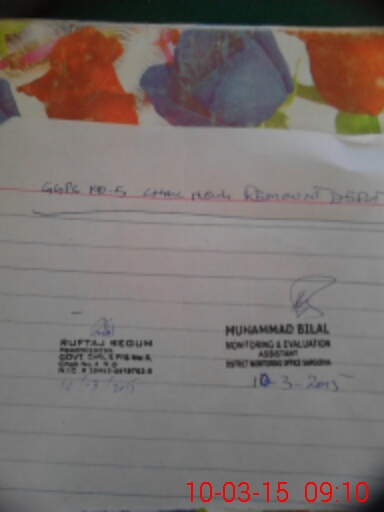 GGPS NO-5 CHAK NO 4 REMOUNT DEPOT
MUHAMMAD BILAL
MONITORING & EVALUATION
ASSISTANT
DISTRICT MONITORING OFFICE SARGODHA
10-3-2015
BEGUM
GOVT. GIRLS P/S No. 5,
10-3-2015
10-03-15 09:10